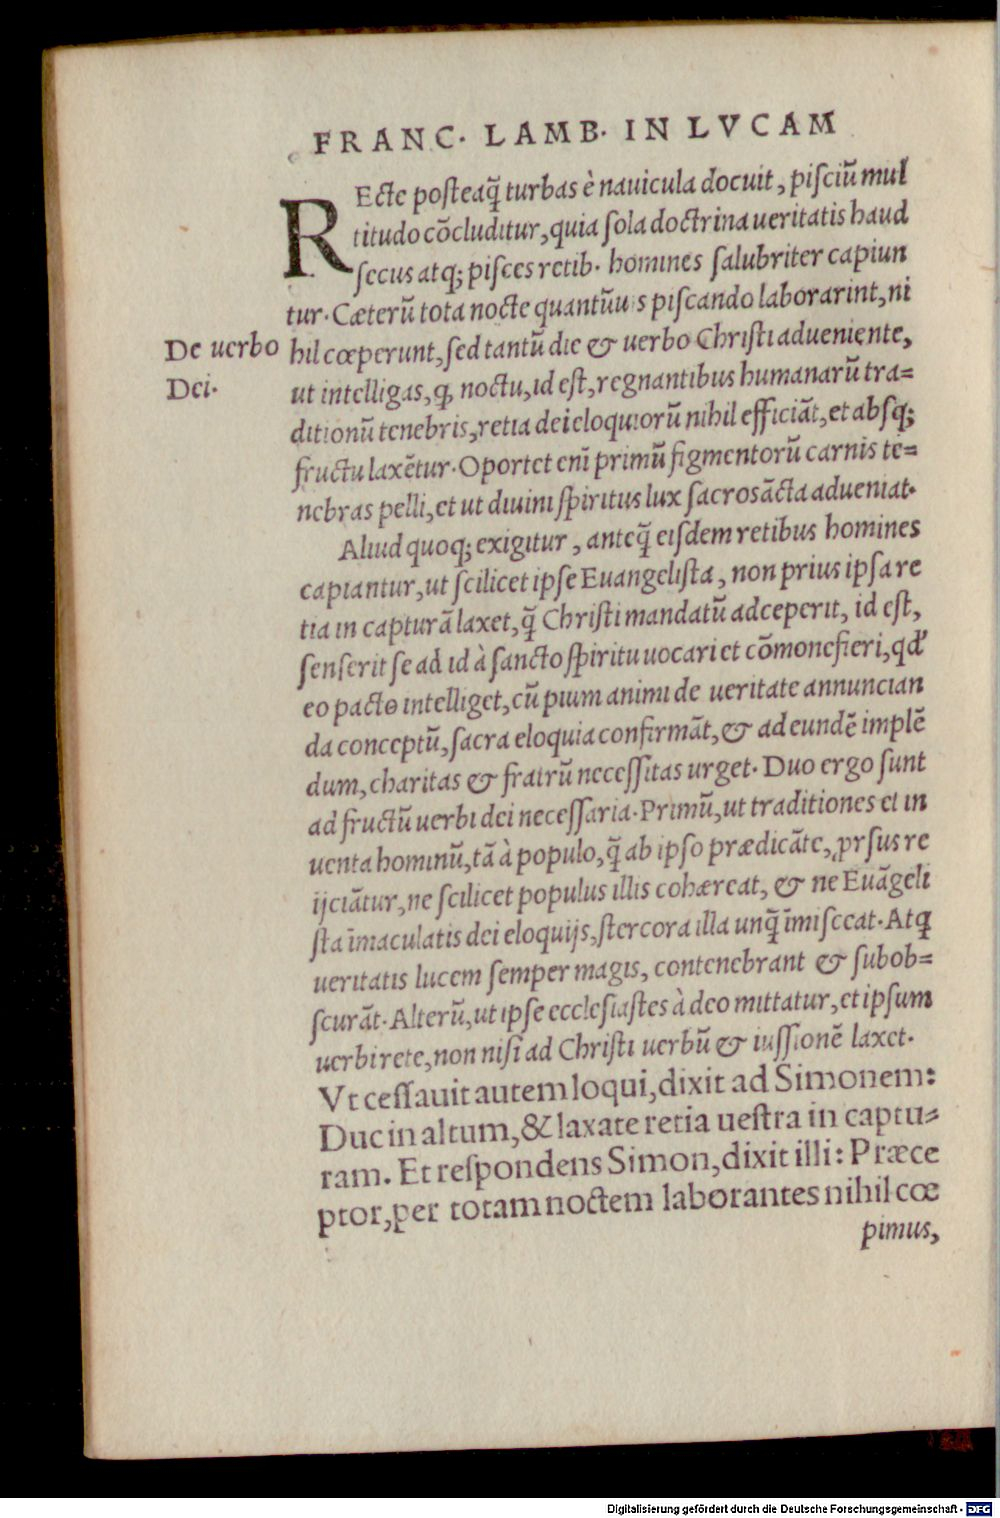 FRANC. LAMB. IN LVCAM
REcte posteaq̃ turbas è nauicula docuit, pisciũ mul
titudo cõcluditur, quia sola doctrina ueritatis haud
secus atq; pisces retib. homines salubriter capiun
tur. Cæterũ tota nocte quantũuis piscando laborarint, ni
De uerbo
Dei.
hil cœperunt, sed tantũ die & uerbo Christi adueniente,
ut intelligas, ꝙ noctu, id est, regnantibus humanarũ tra=
ditionũ tenebris, retia dei eloquiorũ nihil efficiãt, et absq;
fructu laxẽtur. Oportet enĩ primũ figmentorũ carnis te=
nebras pelli, et ut diuini spiritus lux sacrosãcta adueniat.
Aliud quoq; exigitur, anteq̃ eisdem retibus homines
capiantur, ut scilicet ipse Euangelista, non prius ipsa re
tia in capturã laxet, q̃ Christi mandatũ adceperit, id est,
senserit se ad id à sancto spiritu uocari et cõmonefieri, qd'
eo pacto intelliget, cũ pium animi de ueritate annuncian
da conceptũ, sacra eloquia confirmãt, & ad eundẽ implẽ
dum, charitas & fratrũ necessitas urget. Duo ergo sunt
ad fructũ uerbi dei necessaria. Primũ, ut traditiones et in
uenta hominũ, tã à populo, q̃ ab ipso prædicãte, ꝓrsus re
ijciãtur, ne scilicet populus illis cohæreat, & ne Euãgeli
sta ĩmaculatis dei eloquijs, stercora illa unq̃ ĩmisceat. Atꝙ
ueritatis lucem semper magis, contenebrant & subob=
scurãt. Alterũ, ut ipse ecclesiastes à deo mittatur, et ipsum
uerbi rete, non nisi ad Christi uerbũ & iussionẽ laxet.
Vt cessauit autem loqui, dixit ad Simonem:
Duc in altum, & laxate retia uestra in captu=
ram. Et respondens Simon, dixit illi: Præce
ptor, per totam noctem laborantes nihil cœ
pimus,
Digitalisierung gefördert durch die Deutsche Forschungsgemeinschaft - DFG